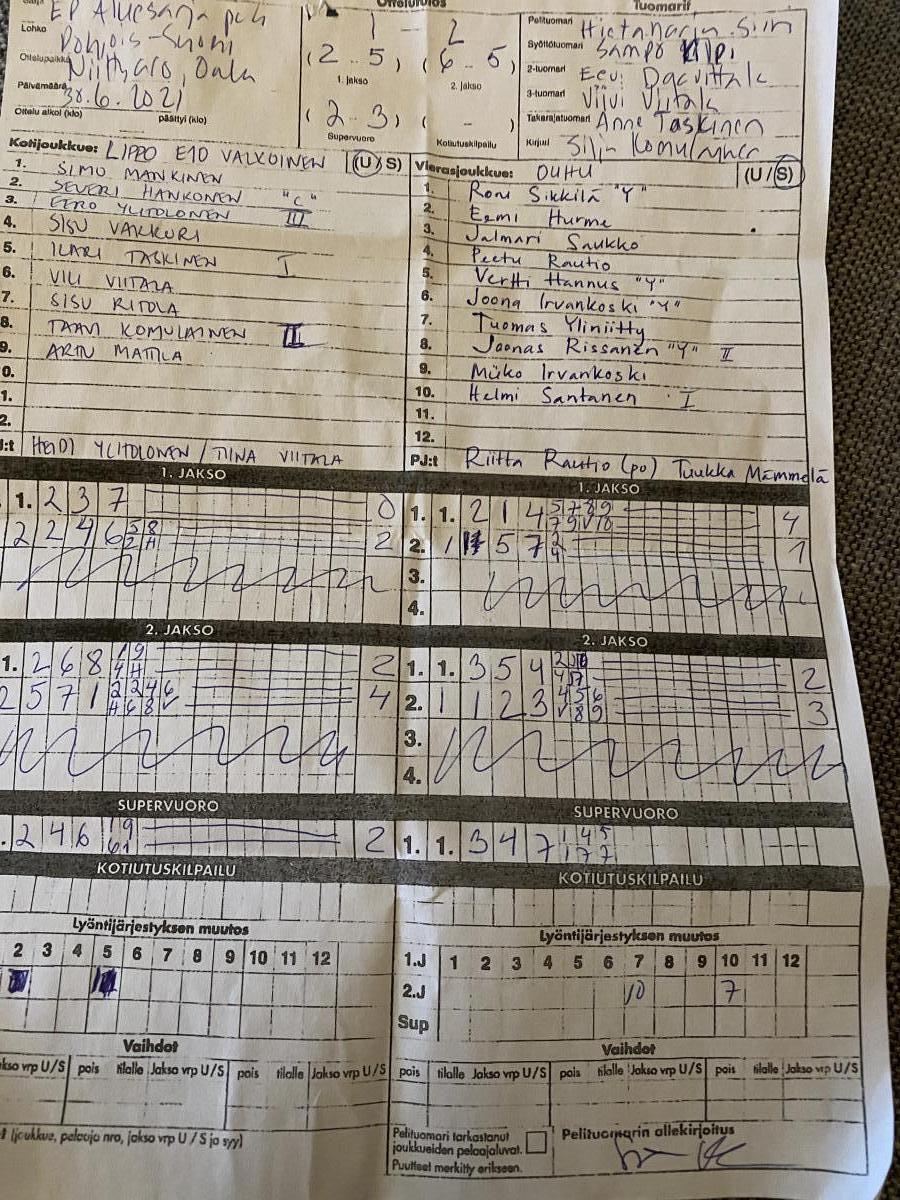 Ottelutulos
Tuomarit
EP Aluesarja
Lohko
Pohjois-Suomi
Ottelupaikka
Niittyaro, Oulu
Päivämäärä
30.6.2021
Ottelu alkoi (klo) päättyi (klo)
1 - 2
(2 - 5) (6 - 5)
1. jakso 2. jakso
(2 - 3) ( - )
Supervuoro Kotiutuskilpailu
Pelituomari
Syöttötuomari Sampo
2-tuomari Eevi
3-tuomari Viivi Viitala
Takarajatuomari Anne Taskinen
Kirjuri Silja Komulainen
Kotijoukkue: LIPPO E10 VALKOINEN (U/S)
1. SIMO MANKINEN
2. SEVERI HANKONEN "C"
3. EERO YLITOLONEN III
4. SISU VAKKURI
5. ILARI TASKINEN I
6. VILI VIITALA
7. SISU RITOLA
8. TAAVI KOMULAINEN II
9. ARTU MATTILA
0.
1.
2.
J:t HEIDI YLITOLONEN / TIINA VIITALA
Vierasjoukkue: OUHU (U/S)
1. Roni Sikkilä "Y"
2. Eemi Hurme
3. Jalmari Saukko
4. Peetu Rautio
5. Vertti Hannus "Y"
6. Joona Irvankoski "Y"
7. Tuomas Yliniitty
8. Joonas Rissanen "Y" II
9. Miiko Irvankoski
10. Helmi Santanen I
11.
12.
PJ:t Riitta Rautio (po) Tuukka Mämmelä
1. JAKSO
1. 2 3 7 0
2 2 4 6 2
1. JAKSO
1. 1. 2 1 4 4
2. 1 5 7 1
3.
4.
2. JAKSO
1. 2 6 8 2
2 5 7 1 4
2. JAKSO
1. 1. 3 5 4 2
2. 1 1 2 3 3
3.
4.
SUPERVUORO
. 2 4 6 2
SUPERVUORO
1. 1. 3 4 7
KOTIUTUSKILPAILU
KOTIUTUSKILPAILU
Lyöntijärjestyksen muutos
2 3 4 5 6 7 8 9 10 11 12
Lyöntijärjestyksen muutos
1.J 1 2 3 4 5 6 7 8 9 10 11 12
2.J 10 7
Sup
Vaihdot
Jakso vrp U/S pois tilalle Jakso vrp U/S pois tilalle Jakso vrp U/S
Vaihdot
pois tilalle Jakso vrp U/S pois tilalle Jakso vrp U/S pois tilalle Jakso vrp U/S
t (joukkue, pelaaja nro, jakso vrp U / S ja syy)
Pelituomari tarkastanut
joukkueiden pelaajaluvat.
Puutteet merkitty erikseen.
Pelituomarin allekirjoitus